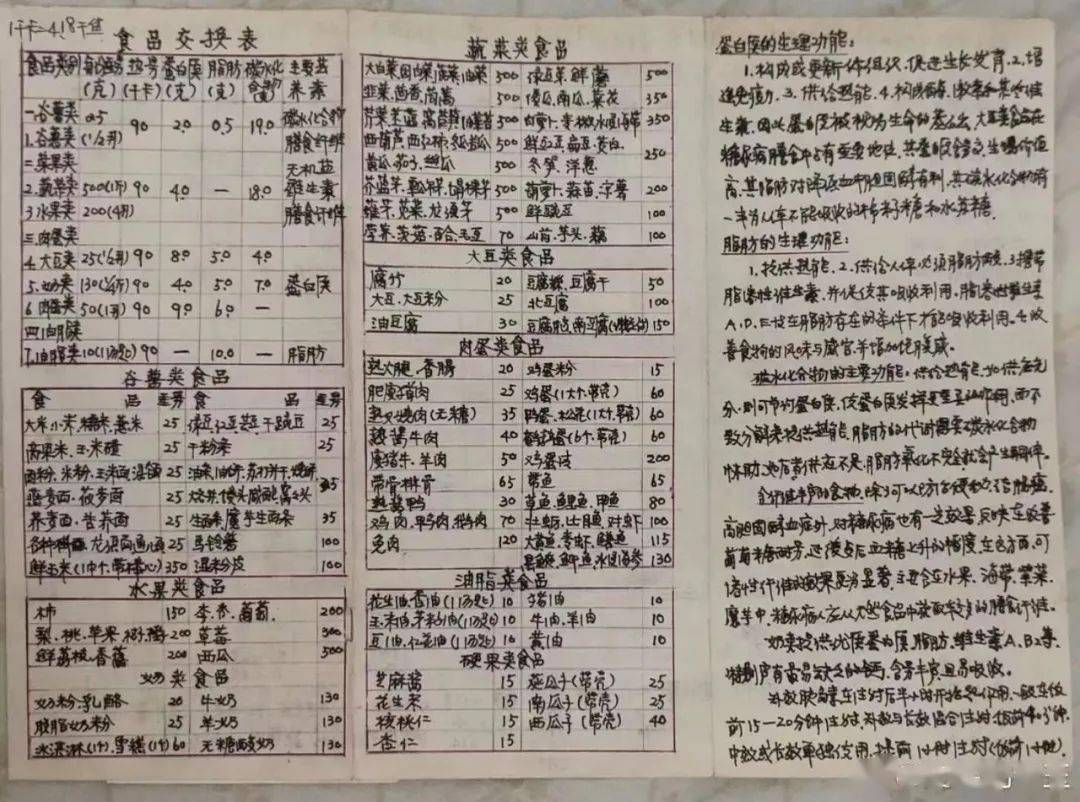 1千卡=4.18千焦
食品交换表
食品类别 每份重量(克) 热量(千卡) 蛋白质(克) 脂肪(克) 碳水化合物 主要营养素
一.谷薯类 25 90 2.0 0.5 19.0 碳水化合物
1.谷薯类 (1/2两) 膳食纤维
二.菜果类 无机盐
2.蔬菜类 500(1斤) 90 4.0 — 18.0 维生素
3.水果类 200(4两) 膳食纤维
三.肉蛋类
4.大豆类 25(1/2两) 90 8.0 5.0 4.0
5.奶类 130 90 4.0 5.0 7.0 蛋白质
6.肉蛋类 50(1两) 90 9.0 6.0 —
四.油脂类
7.油脂类 10(1汤匙) 90 — 10.0 — 脂肪
谷薯类食品
食品 重量 食品 重量
大米、小米、糯米、薏米 25 绿豆、红豆、芸豆、干豌豆 25
高粱米、玉米碴 25 干粉条 25
面粉、米粉、玉米面、混合面 25 油条、油饼、苏打饼干、烧饼
燕麦面、莜麦面 25 馒头、咸面包、窝头 35
荞麦面、苦荞面 25 生面条、魔芋生面条 35
各种挂面、龙须面、通心粉 25 马铃薯 100
鲜玉米(1中个、带棒心) 350 湿米粉皮
水果类食品
柿 150 李、杏、葡萄 200
梨、桃、苹果、柑、橘 200 草莓 300
鲜荔枝、香蕉 200 西瓜 500
奶类食品
奶粉、乳酪 20 牛奶 130
脱脂奶粉 25 羊奶 130
冰淇淋(1个)、雪糕(1个) 60 无糖酸奶 130
蔬菜类食品
大白菜、圆白菜、菠菜、油菜 500 绿豆芽、鲜蘑 500
韭菜、茴香、茼蒿 500 倭瓜、南瓜、菜花 350
芹菜、苤蓝、莴苣 500 白萝卜、茭白、水浸海带 350
西葫芦、西红柿、冬瓜、苦瓜 500 鲜豇豆、扁豆 250
黄瓜、茄子、丝瓜 500 冬笋、洋葱
芥蓝菜 500 胡萝卜、蒜苗 200
蕹菜、苋菜、龙须菜 500 鲜豌豆 100
荸荠、茨菇、百合、毛豆 70 山药、芋头、藕 100
大豆类食品
腐竹 20 豆腐丝、豆腐干 50
大豆、大豆粉 25 北豆腐 100
油豆腐 30 豆腐脑、南豆腐 150
肉蛋类食品
熟火腿、香肠 20 鸡蛋粉 15
肥瘦猪肉 25 鸡蛋(1大个、带壳) 60
熟叉烧肉(无糖) 35 鸭蛋、松花(1大个、带壳) 60
酱牛肉 40 鹌鹑蛋(6个、带壳) 60
瘦猪牛、羊肉 50 鸡蛋清 200
带骨排骨 65 带鱼 65
熟酱鸭 30 草鱼、鲤鱼、甲鱼 80
鸡肉、鸭肉、鹅肉 70 牡蛎、比目鱼、对虾 100
兔肉 120 大黄鱼、青虾、鲢鱼 115
黑鲢、鲫鱼、水浸海参 130
油脂类食品
花生油、香油(1汤匙) 10 猪油 10
玉米油、菜籽油(1汤匙) 10 牛油、羊油 10
豆油、红花油(1汤匙) 10 黄油 10
硬果类食品
芝麻酱 15 葵瓜子(带壳) 25
花生米 15 南瓜子(带壳) 25
核桃仁 15 西瓜子(带壳) 40
杏仁 15
蛋白质的生理功能：
1.构成或更新体组织,促进生长发育.2.增
进免疫力.3.供给热能.4.构成酶、激素和某些维
生素.因此蛋白质被视为生命的基础.大豆类食品在
糖尿病膳食中占有重要地位,其蛋白质含量多,生理价值
高,其脂肪对降低血中胆固醇有利,其碳水化合物有
一半为人体不能吸收的棉籽糖和水苏糖.
脂肪的生理功能：
1.提供热能.2.供给人体必须脂肪酸.3.携带
脂溶性维生素,并促使其吸收利用,脂溶性维生素
A.D.E.仅在脂肪存在的条件下才能吸收利用.4.改
善食物的风味与感官,并增加饱腹感.
碳水化合物的主要功能:供给热能,如供应充
分,则可节约蛋白质,使蛋白质发挥更重要的作用,而不
致分解来提供热能.脂肪的代谢需要碳水化合物
协助,如后者供应不足,脂肪氧化不完全就会产生酮体.
食物除了可以防治便秘、结肠癌、
高胆固醇血症外,对糖尿病也有一定效果,反映在改善
葡萄糖耐量,延缓餐后血糖上升的幅度,在这方面,可
溶性纤维的效果更为显著,主要含在水果、海带、紫菜、
魔芋中,糖尿病人应从天然食品中获取丰富的膳食纤维.
奶类提供优质蛋白质,脂肪,维生素A、B2等,
特别富有最易缺乏的钙,含量丰富且易吸收.
胰岛素在注射后半小时开始起作用,一般在饭
前15—20分钟注射,
中效或长效单独使用,提前1小时注射(饭前1小时).